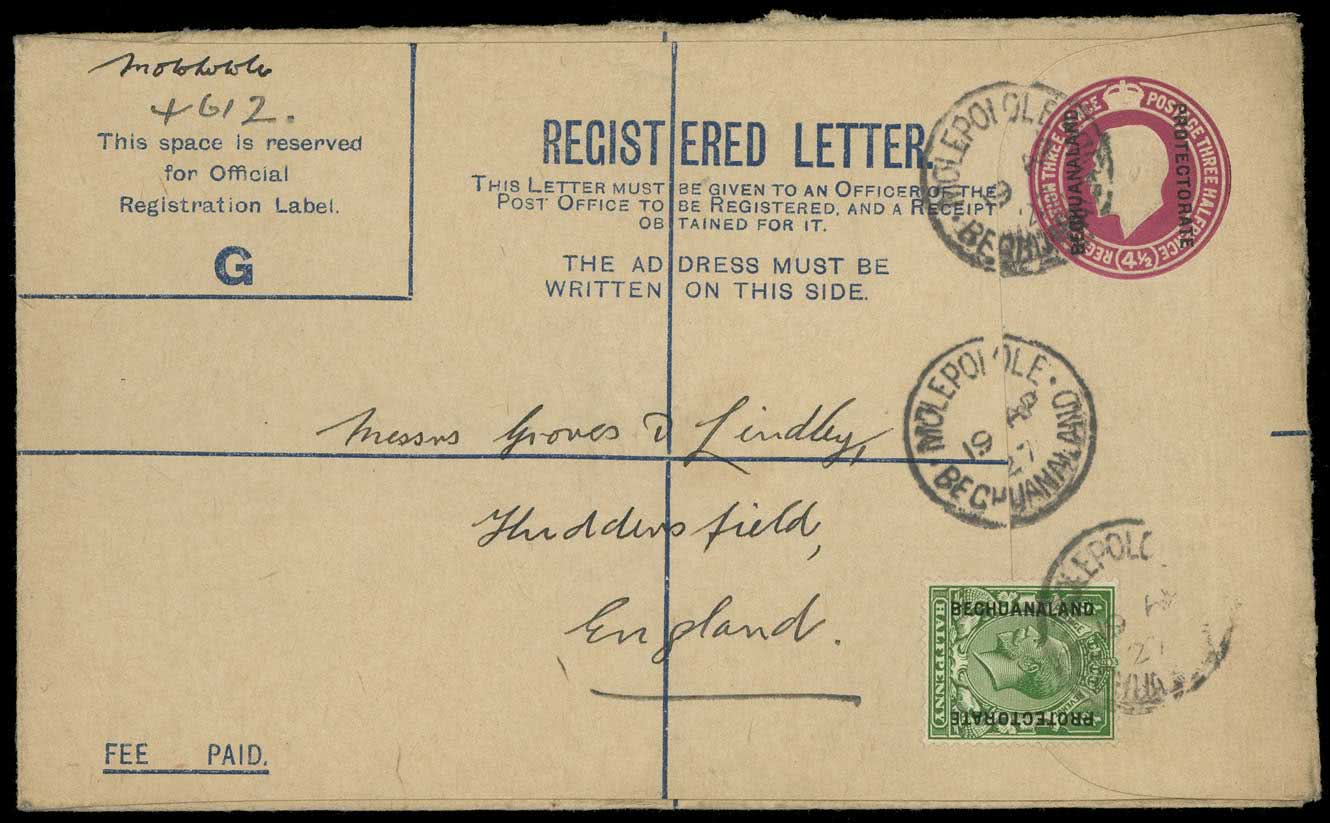 4612.
This space is reserved
for Official
Registration Label.
G
REGISTERED LETTER.
THIS LETTER MUST BE GIVEN TO AN OFFICER OF THE
POST OFFICE TO BE REGISTERED, AND A RECEIPT
OBTAINED FOR IT.
THE ADDRESS MUST BE
WRITTEN ON THIS SIDE.
POSTAGE THREE HALFPENCE
4½
BECHUANALAND
PROTECTORATE
MOLEPOLOLE
19
BECHUANALAND
MOLEPOLOLE
19 AP
27
BECHUANALAND
Messrs Groves & Lindley,
Huddersfield,
England.
MOLEPOLO
27
BECHUANALAND
PROTECTORATE
HALFPENNY
FEE PAID.